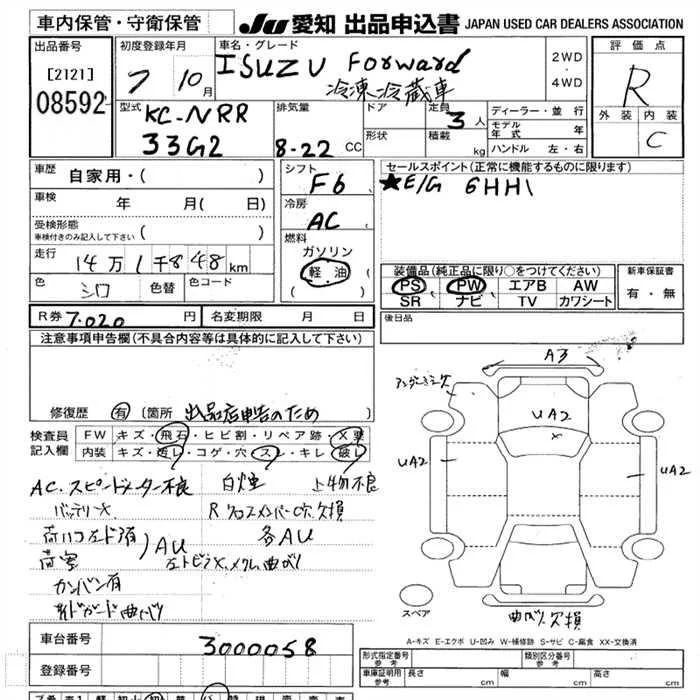 車内保管・守衛保管
JU 愛知 出品申込書 JAPAN USED CAR DEALERS ASSOCIATION
出品番号
[2121]
08592
初度登録年月
7 10月
車名・グレード
ISUZU Forward
冷凍冷蔵車
2WD
・
4WD
評価点
R
外装 内装
C
型式
KC-NRR
33G2
排気量
8-22 CC
ドア
形状
定員
3人
積載
kg
ディーラー・並行
モデル年式 年
ハンドル 左・右
車歴
自家用・( )
車検
年 月( 日)
受検形態
車検付きのみ記入して下さい ( )
走行
14万1千848km
色
シロ
色替
色コード
シフト
F6
冷房
AC
燃料
ガソリン
軽油
セールスポイント(正常に機能するものに限ります)
★E/G 6HH1
装備品(純正品に限り○をつけてください)
PS、 PW、 エアB AW
SR ナビ TV カワシート
新車保証書
有・無
後日品
R券 7.020 円
名変期限 月 日
注意事項申告欄(不具合内容等は具体的に記入して下さい)
修復歴 有 〔箇所 出品店申告のため
検査員
記入欄
FW キズ・飛石・ヒビ割・リペア跡・X要
内装 キズ・汚レ・コゲ・穴・スレ・キレ・破レ
AC.スピードメーター不良 白煙 上物不良
バッテリーX Rクロスメンバー穴欠損
荷ハコ左ドア有 各AU
AU
カンバン有
サイドガード曲がり
A3
UA2
UA2
UA2
スペア
曲がり欠損
A-キズ E-エクボ U-凹み W-補修跡 S-サビ C-腐食 XX-交換済
車台番号
3000058
登録番号
形式指定番号
参考
類別区分番号
参考
車庫証明用
参考
長さ cm
幅 cm
高さ cm